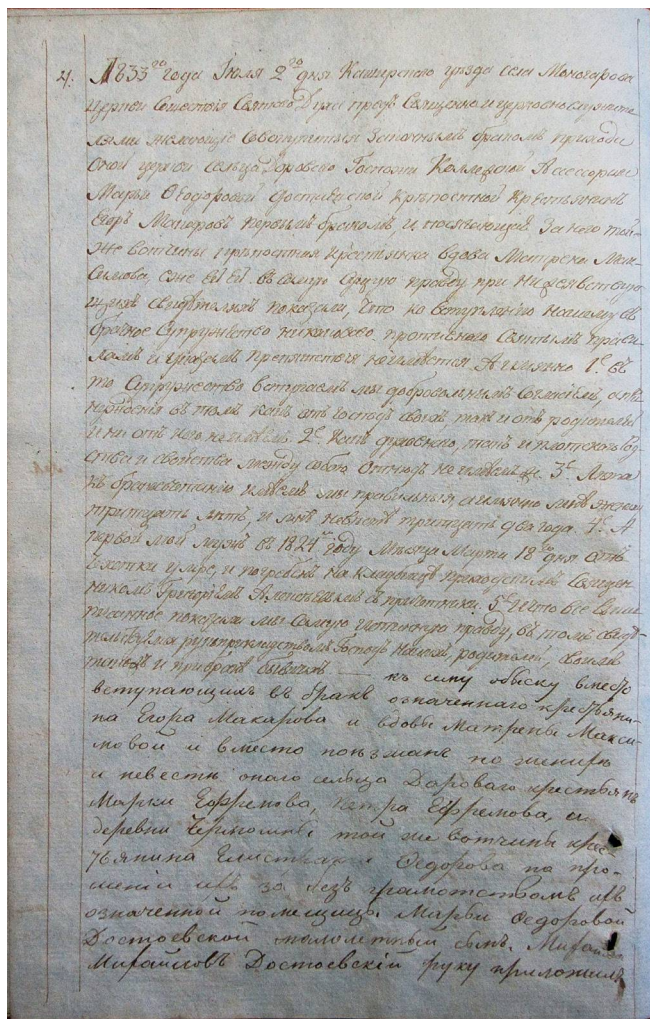 4. 1833го года Июля 2го дня Каширского уезда села Моногарова
церкви Сошествия Святаго Духа пред Священно и церковнослужите
лями желающие совокупиться законным браком прихода
оной церкви сельца Дарового Госпожи Коллежской Ассессорши
Марьи Феодоровой Достоевской крепостной крестьянин
Егор Макаров первым браком, и посягающая за него той
же вотчины крепостная крестьянка вдова Матрена Мак
симова, еже ей ей в самую сущую правду при нижеявствую
щих свидетелях показали, что ко вступлению нашему в
брачное супружество никакого противного святым прави
лам и указам препятствия не имеется. А именно 1е в
то супружество вступаем мы добровольным согласием, а не
в том как от господ своих так и от родителей
и ни от кого не имеем. 2е Как духовного, так и плотского род
ства и свойства между собою отнюдь не имеем. 3е Лета
к бракосочетанию имеем мы правильныя, а именно мне жениху
тритцать лет, и мне невесте тритцать два года. 4е А
первой мой муж в 1824м году месяца Марта 18го дня от
чахотки умре, и погребен на кладбище приходским священ
ником с причетники. 5е И что все выше
писанное показали мы самую истинную правду, в том свиде
тельствуем рукоприкладством Господ наших родителей, своим
и — къ сему обыску вместо
вступающихъ въ бракъ означеннаго крестьяни-
на Егора Макарова и вдовы Матрены Макси-
мовой и вместо поезжанъ по женихе
и невесте онаго сельца Дароваго крестьянъ
Марки Ефремова, Петра Ефремова, и
деревни Чермошни той же вотчины крес-
тьянина Федорова по про-
шенiи ихъ за безъ грамотствомъ ихъ
означенной помещицы Марьи Федоровой
Достоевской малолетный сынъ Михаилъ
Михайловъ Достоевскiй руку приложилъ